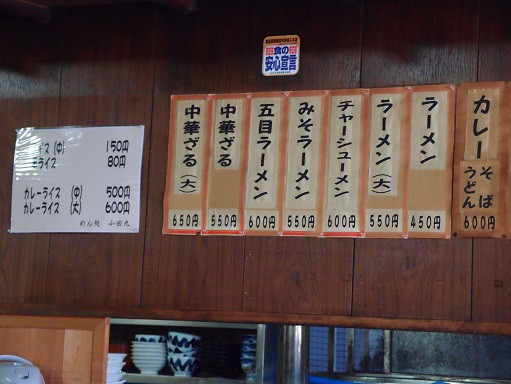 食の
安心宣言
カレー
そば
うどん
600円
ラーメン
450円
ラーメン(大)
550円
チャーシューメン
600円
みそラーメン
550円
五目ラーメン
600円
中華ざる
550円
中華ざる(大)
650円
イス(中) 150円
ライス 80円
カレーライス (中) 500円
カレーライス (大) 600円
めん処 小田丸